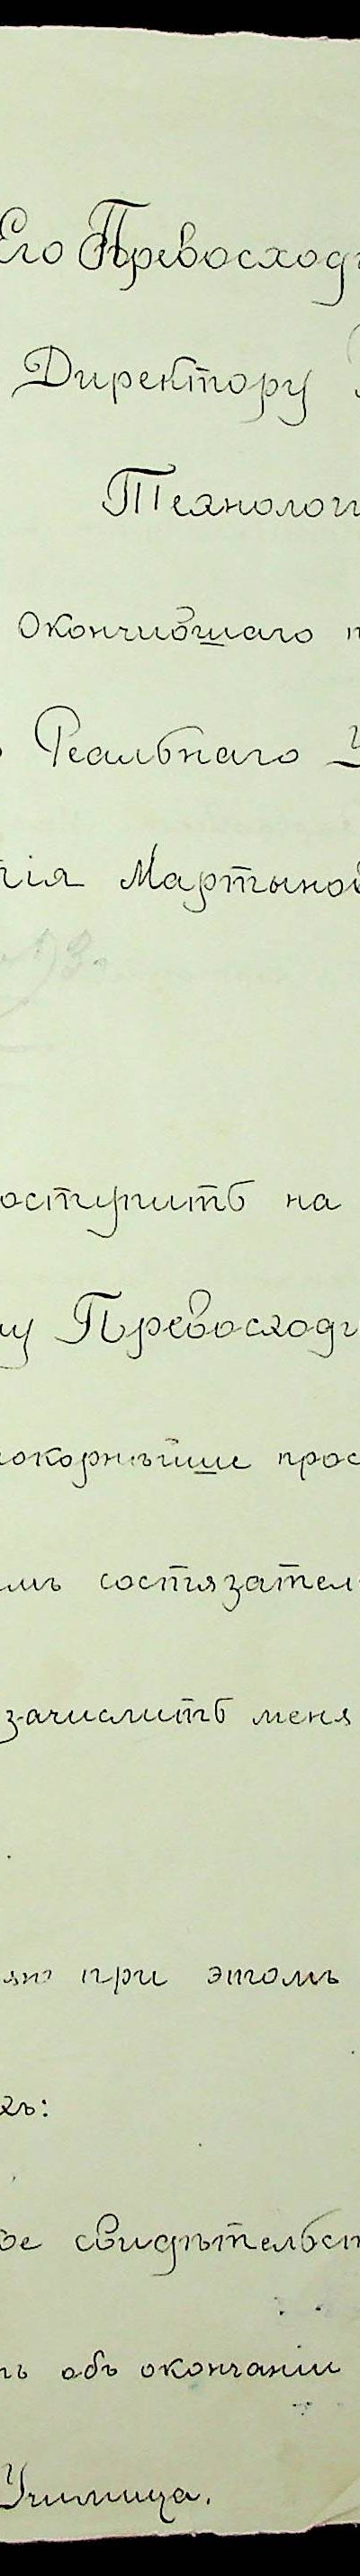 Его Превосход
Директору
Технолог
Окончившаго
Реальнаго
Мартыной
поступить на
Превосход
покорнѣйше прос
состязател
зачислить меня
при этомъ
хъ:
ое свидѣтельст
объ окончании
Училища.